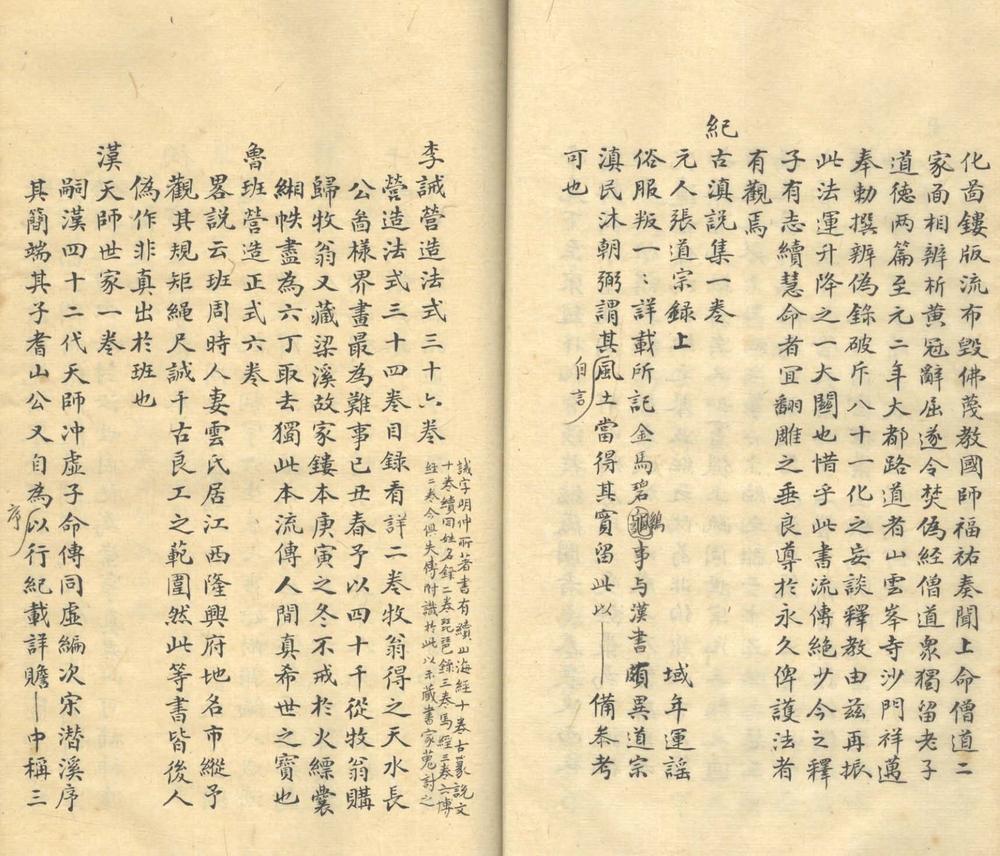 化啚鏤版流布毀佛蔑教國師福祐奏聞上命僧道二
家面相辨析黃冠辭屈遂令焚偽經僧道衆獨留老子
道德兩篇至元二年大都路道者山雲峯寺沙門祥邁
奉勅撰辨偽錄破斥八十一化之妄談釋教由兹再振
此法運升降之一大關也惜乎此書流傳絕少今之釋
子有志續慧命者冝翻雕之垂良導於永久俾護法者
有觀焉
紀古滇說集一卷
元人張道宗錄上 域年運謡
俗服叛一〻詳載所記金馬碧鷄事与漢書頗異道宗
滇民沐朝弼謂其風土當得其實留此以 備叅考
自言
可也
李誡營造法式三十六卷
誡字明仲所著書有續山海經十卷古篆說文
十卷續同姓名錄二卷琵琶錄三卷馬經三卷六博
經三卷今俱失傳附識於此以示藏書家蒐討之
營造法式三十四卷目録看詳二卷牧翁得之天水長
公啚樣界畫最為難事已丑春予以四十千從牧翁購
歸牧翁又藏梁溪故家鏤本庚寅之冬不戒於火縹囊
緗帙盡為六丁取去獨此本流傳人間真希世之寶也
魯班營造正式六卷
畧說云班周時人妻雲氏居江西隆興府地名市縱予
觀其規矩繩尺誠千古良工之範圍然此等書皆後人
偽作非真出於班也
漢天師世家一卷
嗣漢四十二代天師冲虛子命傳同虛編次宋潛溪序
其簡端其子耆山公又自為以行紀載詳贍 中稱三
序